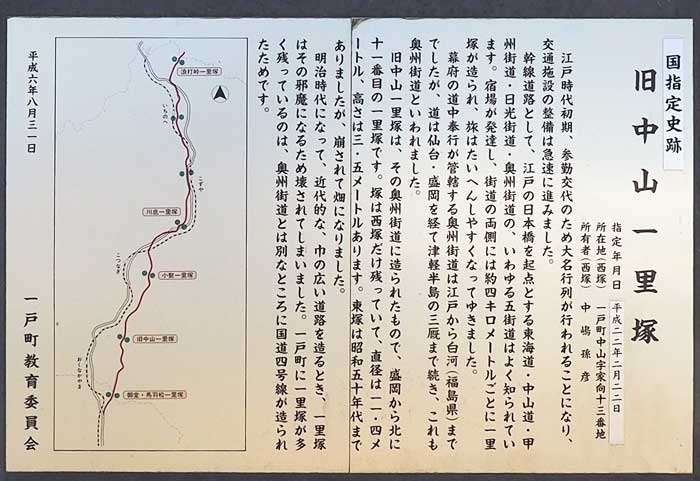 国指定史跡
旧中山一里塚
指定年月日　平成二二年二月二二日
所在地(西塚)　一戸町中山字家向十三番地
所有者(西塚)　中嶋孫彦
江戸時代初期、参勤交代のため大名行列が行われることになり、
交通施設の整備は急速に進みました。
幹線道路として、江戸の日本橋を起点とする東海道・中山道・甲
州街道・日光街道・奥州街道の、いわゆる五街道はよく知られてい
ます。宿場が発達し、街道の両側には約四キロメートルごとに一里
塚が造られ、旅はたいへんしやすくなってゆきました。
幕府の道中奉行が管轄する奥州街道は江戸から白河(福島県)まで
でしたが、道は仙台・盛岡を経て津軽半島の三厩まで続き、これも
奥州街道といわれました。
旧中山一里塚は、その奥州街道に造られたもので、盛岡から北に
十一番目の一里塚です。塚は西塚だけ残っていて、直径は一一・四メ
ートル、高さは三・五メートルあります。東塚は昭和五十年代まで
ありましたが、崩されて畑になりました。
明治時代になって、近代的な、巾の広い道路を造るとき、一里塚
はその邪魔になるため壊されてしまいました。一戸町に一里塚が多
く残っているのは、奥州街道とは別なところに国道四号線が造られ
たためです。
浪打峠一里塚
いちのへ
こずや
川底一里塚
こつなぎ
小繋一里塚
旧中山一里塚
おくなかやま
御堂・馬羽松一里塚
平成六年八月三一日
一戸町教育委員会